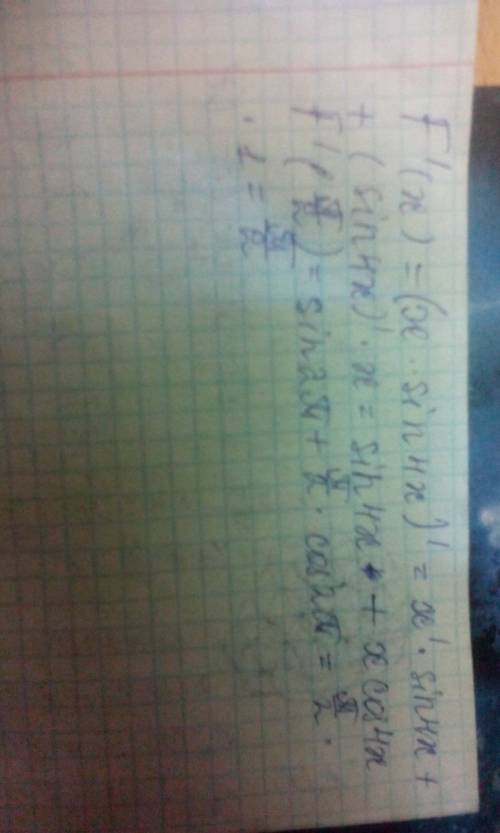 F'(x) = (x · sin4x)' = x' · sin4x +
+ (sin4x)' · x = sin4x + x cos4x
F'(π/2) = sin2π + π/2 · cos2π = π/2 ·
· 1 = π/2